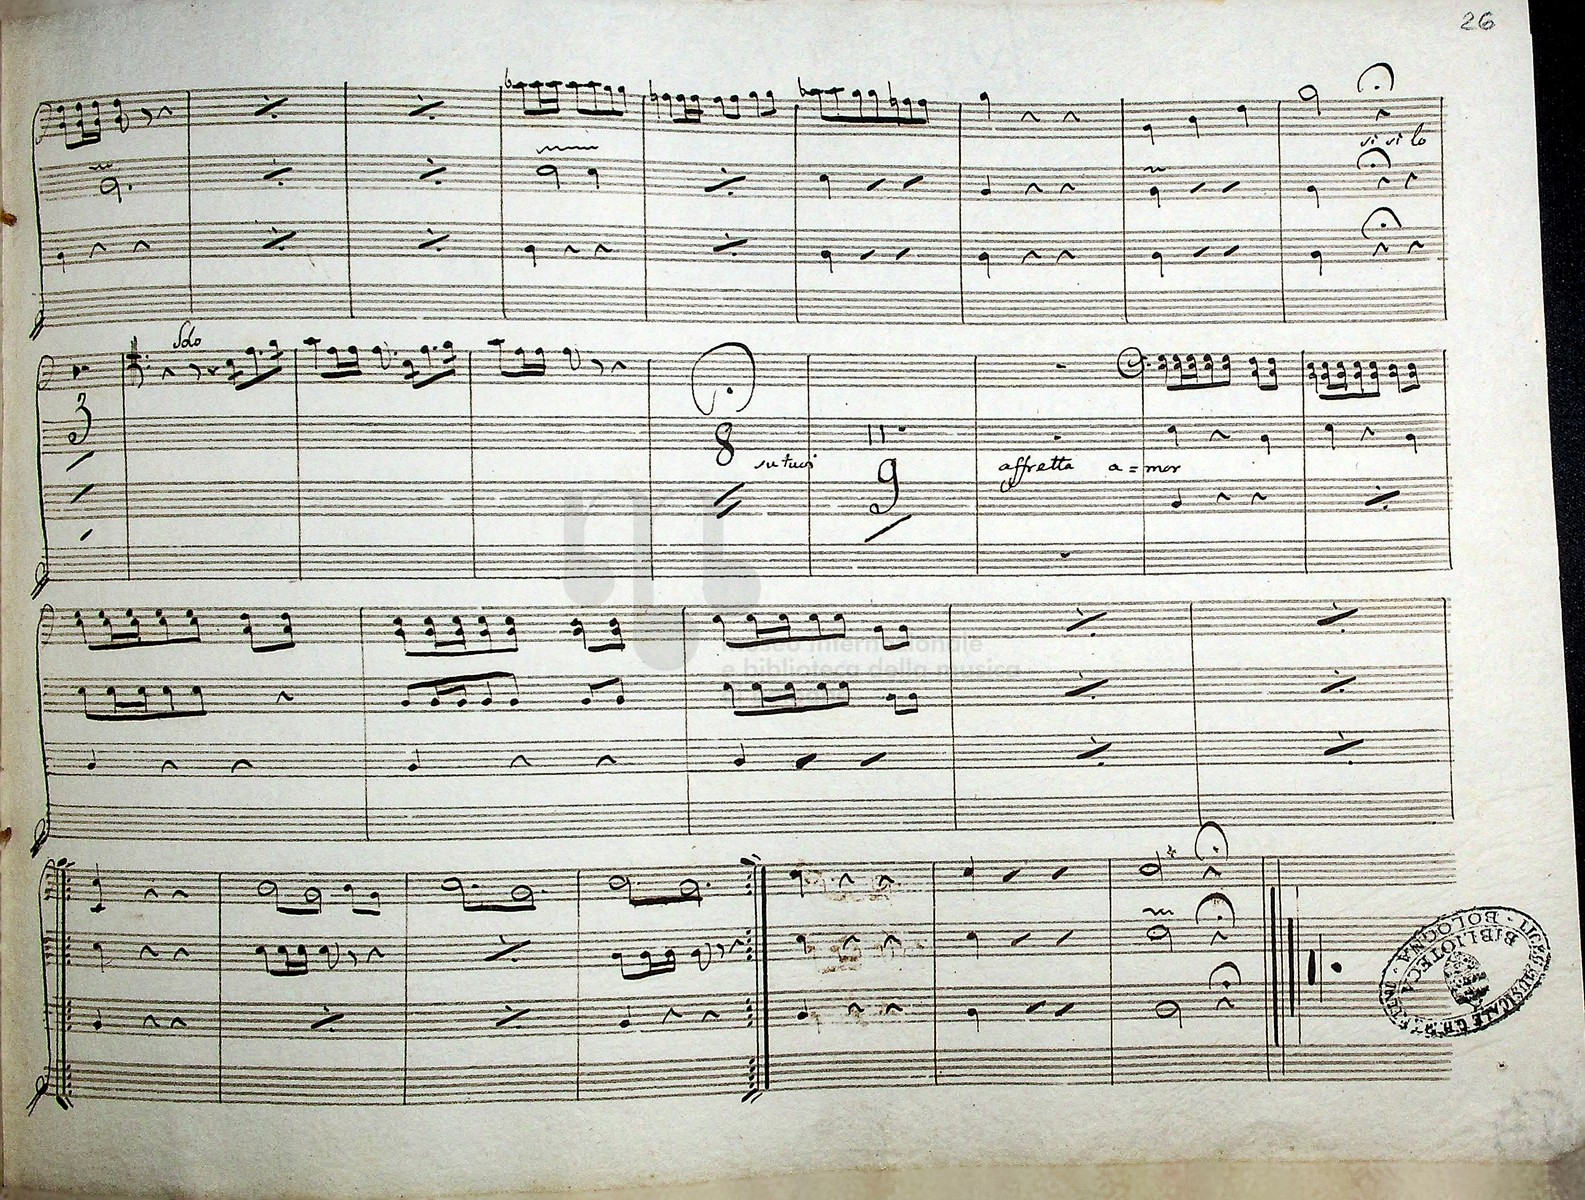 26
si si lo
Solo
3
8
su tuoi
9
affretta a = mor
museo internazionale
e biblioteca della musica
LICEO MUSICALE
BIBLIOTECA
BOLOGNA